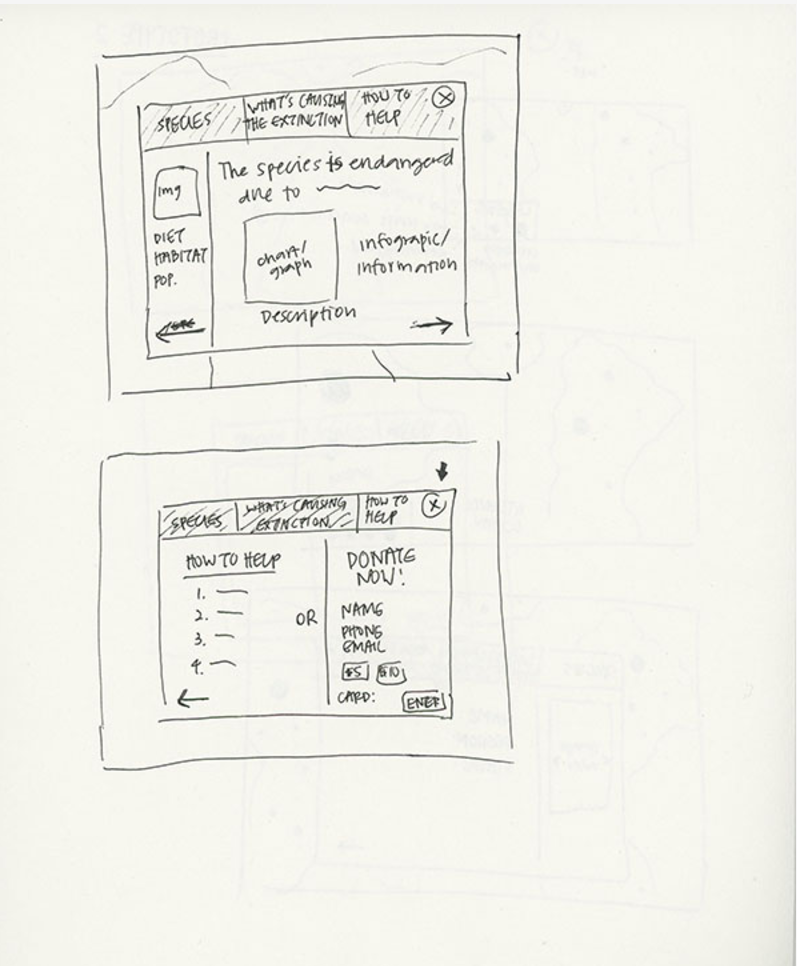 SPECIES
WHAT'S CAUSING
THE EXTINCTION
HOW TO
HELP
X
img
DIET
HABITAT
POP.
The species is endangered
due to
chart/
graph
infograpic/
information
Description
SPECIES
WHAT'S CAUSING
EXTINCTION
HOW TO
HELP
X
HOW TO HELP
1.
2.
3.
4.
OR
DONATE
NOW!
NAME
PHONE
EMAIL
$5 $10
CARD: